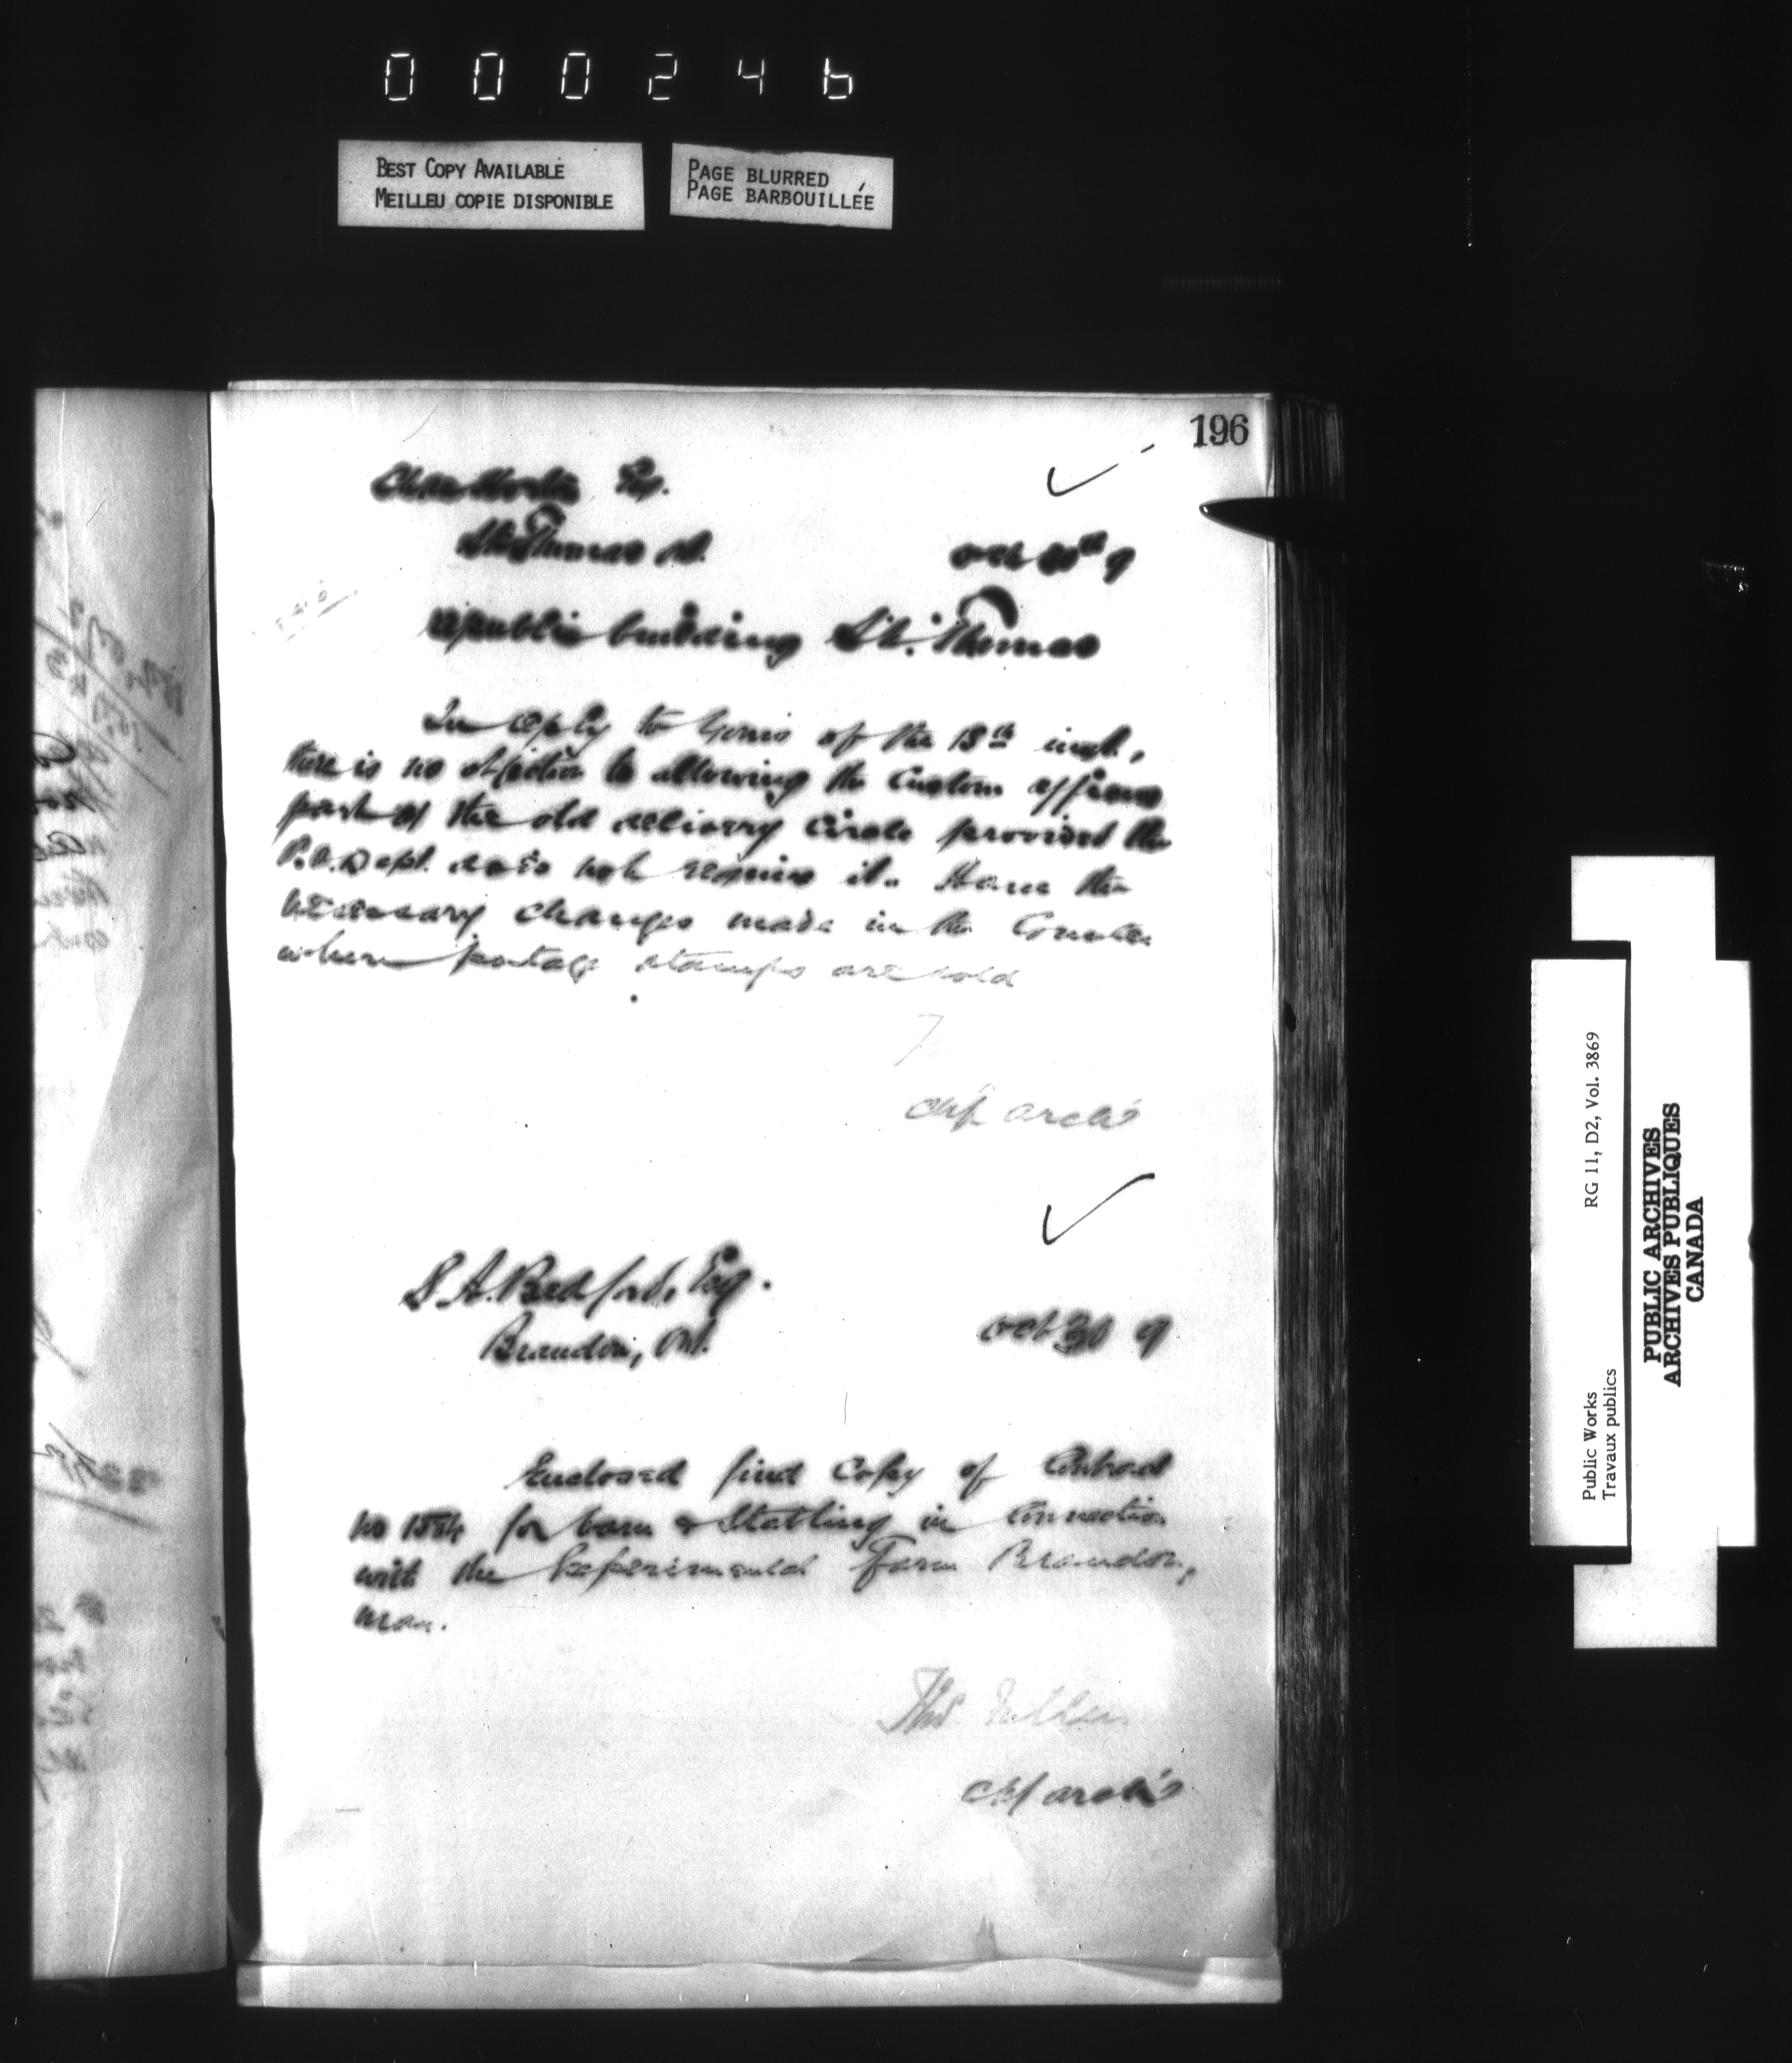 000246
BEST COPY AVAILABLE
MEILLEU COPIE DISPONIBLE
PAGE BLURRED
PAGE BARBOUILLÉE
196
Esq.
St. Thomas O.
Oct 30th 9
Re public building St. Thomas
In reply to yours of the 18th inst,
there is no objection to allowing the Custom officers
part of the old delivery circle provided the
P.O. Dept. does not require it. Have the
necessary changes made in the Counter
where postage stamps are sold
Chf archt
S. A. Bedford, Esq.
Brandon, M.
Oct 30 9
Enclosed find Copy of Contract
no for barn & Stabling in Connection
with the Experimental Farm Brandon,
Man.
Thos Fuller
Chf archt
Public Works
Travaux publics
RG 11, D2, Vol. 3869
PUBLIC ARCHIVES
ARCHIVES PUBLIQUES
CANADA